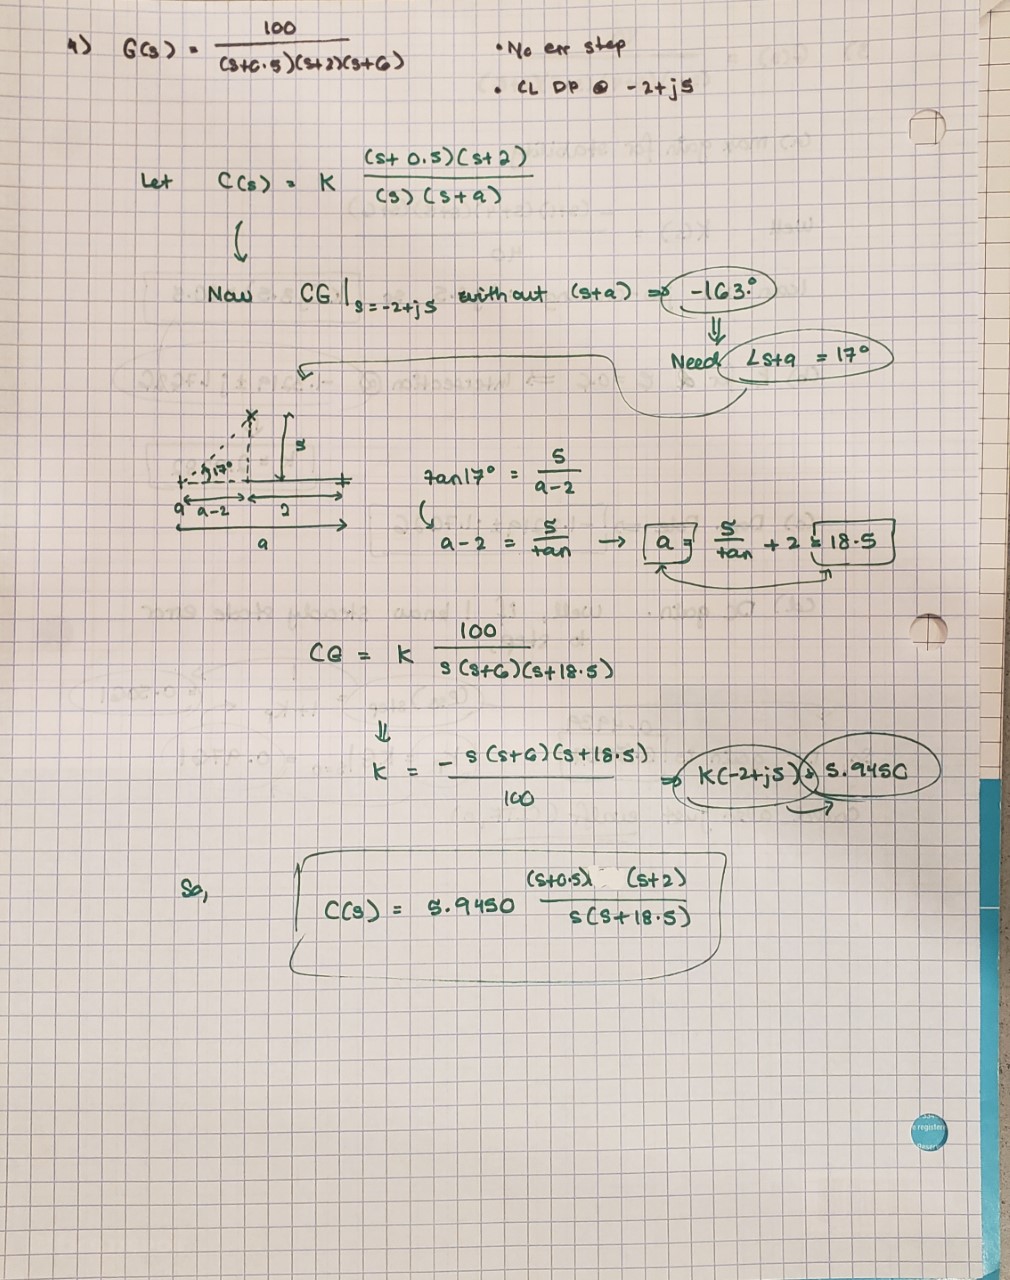 4) G(s) = 100 / (s+0.5)(s+2)(s+6)
• No err step
• CL DP @ -2+j5
Let C(s) = K (s+0.5)(s+2) / (s)(s+a)
Now CG|s=-2+j5 without (s+a) ⇒ -163.°
⇓
Need ∠s+a = 17°
17°
5
a
a-2
2
a
tan17° = 5 / a-2
a-2 = 5/tan → a = 5/tan + 2 = 18.5
CG = K 100 / s(s+6)(s+18.5)
⇓
K = - s(s+6)(s+18.5) / 100 ⇒ K(-2+j5) = 5.9450
So,
C(s) = 5.9450 (s+0.5) (s+2) / s(s+18.5)